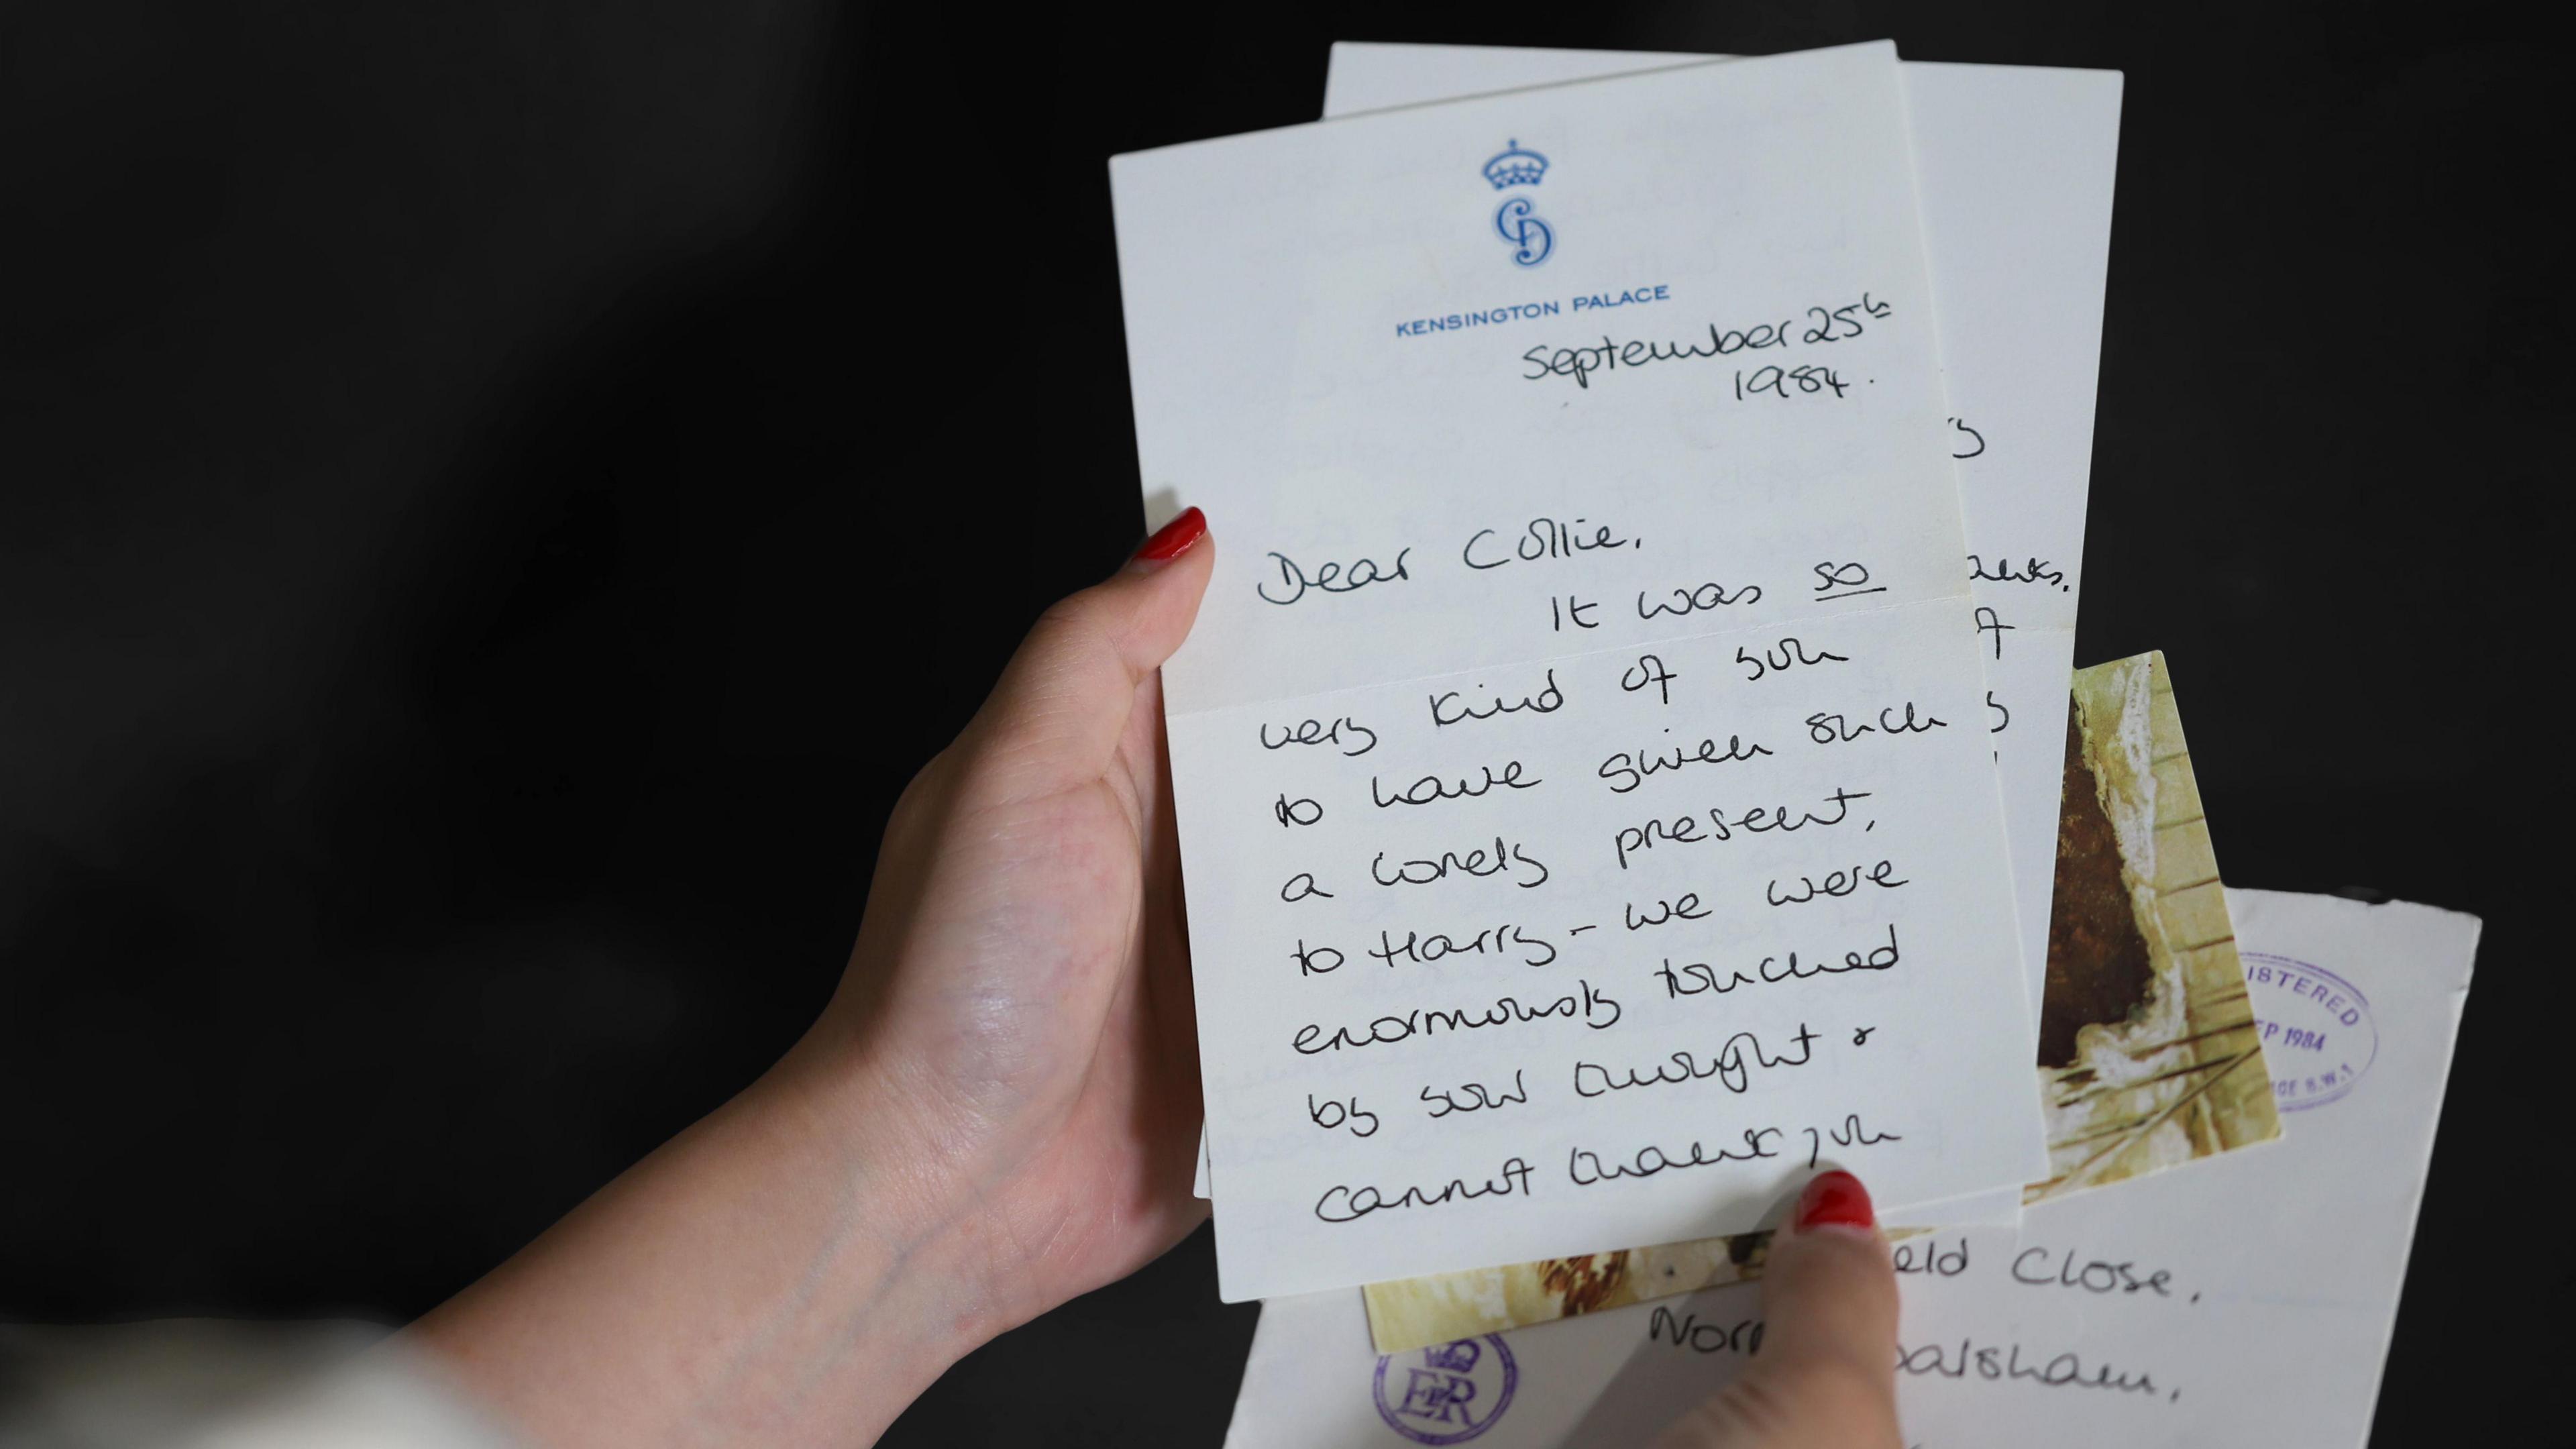 KENSINGTON PALACE
September 25th
1984.
Dear Collie,
It was so
very kind of you
to have given such
a lovely present,
to Harry - we were
enormously touched
by your thought &
cannot thank you
ISTERED
EP 1984
S.W.1
eld Close,
Nor
alsham,
E II R